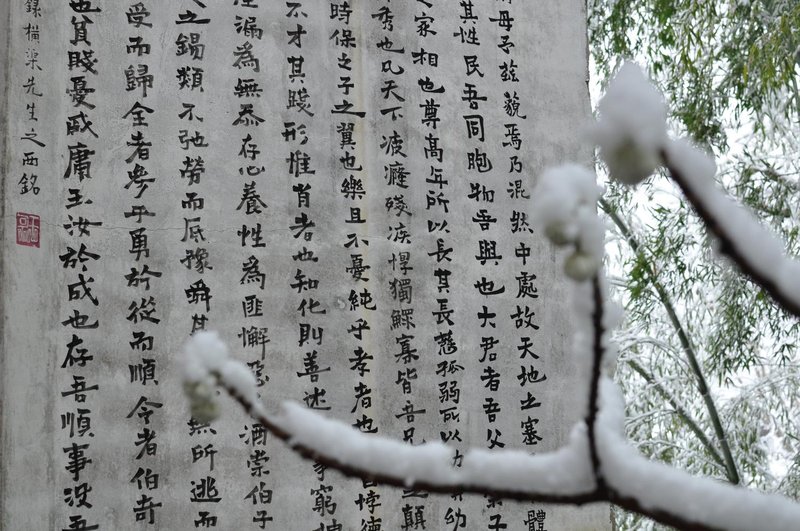 母予茲藐焉乃混然中處故天地之塞體
其性民吾同胞物吾與也大君者吾父子
之家相也尊高年所以長其長慈孤弱所以幼
秀也凡天下疲癃殘疾惸獨鰥寡皆吾兄之顛
時保之子之翼也樂且不憂純乎孝者也悖德
不才其踐形惟肖者也知化則善述事窮神
漏為無忝存心養性為匪懈惡酒崇伯子
之錫類不弛勞而厎豫舜其無所逃而
受而歸全者參乎勇於從而順令者伯奇
也貧賤憂戚庸玉汝於成也存吾順事沒吾
錄橫渠先生之西銘